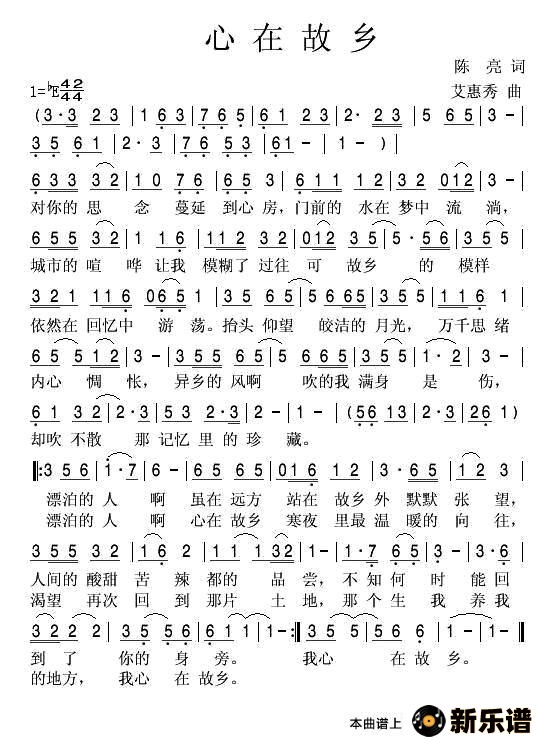 心在故乡
陈 亮 词
1=♭E 42/44
艾惠秀 曲
(3·3 23 | 1 6 3 | 7 6 5 | 61 23 | 2·3 | 5 65 | 3 - |
35 61 | 2·3 | 76 53 | 61 - | 1 - ) |
633 32 | 10 76 | 35 65 | 3 - | 611 12 | 32 012 | 3 - |
对你的思 念 蔓延 到心房，门前的 水在 梦中 流 淌，
655 32 | 1 16 | 112 32 | 012 35 | 5·56 | 35 35 |
城市的喧 哗 让我 模糊了过往 可 故乡 的 模样
321 | 116 065 | 35 65 | 5665 35 | 5 65 | 765 |
依然在 回忆中 游 荡。抬头 仰望 皎洁的 月光， 万千思 绪
65 512 | 3 - | 355 65 | 355 65 | 1·2 | 3 - |
内心 惆 怅， 异乡的 风啊 吹的我 满身 是 伤，
61 32 | 2·3 | 523 | 52·3 | 2 - | 1 - | (56 13 | 2·3 | 26 1)
却吹 不散 那 记忆 里 的 珍 藏。
‖: 3 56 | 1·7 | 6 - | 35 65 | 016 12 | 3·65 | 35 32 | 3 - |
漂泊的 人 啊 虽在 远方 站在 故乡 外 默默 张 望，
漂泊的 人 啊 心在 故乡 寒夜 里最 温 暖的 向 往，
355 35 | 32 | 16 2 | 35 5 | 11 32 | 1·7 | 65 | 3·6 |
人间的 酸甜 苦 辣 都的 品 尝， 不 知 何 时 能 回
渴望 再次 回 到 那片 土 地， 那 个 生 我 养 我
32 22 | 35 56 | 61 1 | 1 - :‖ 35 5 | 56 6 | 1 - | 1 - |
到 了 你的 身 旁。 我心 在 故 乡。
的地方， 我心 在 故乡。
本曲谱上 新乐谱